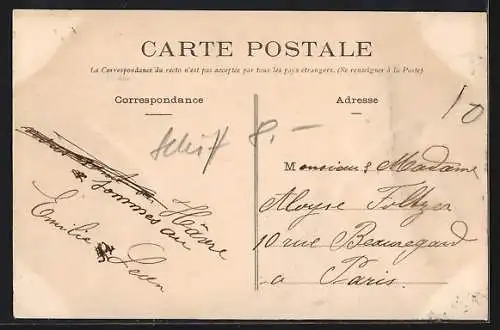 CARTE POSTALE
La Correspondance du recto n'est pas acceptée par tous les pays étrangers. (Se renseigner à la Poste)
Correspondance
Adresse
Schiff 8.-
10
sommes au
Hâvre
Emilie & Leon
Monsieur & Madame
Aloyse Foltzer
10 rue Beauregard
a Paris.